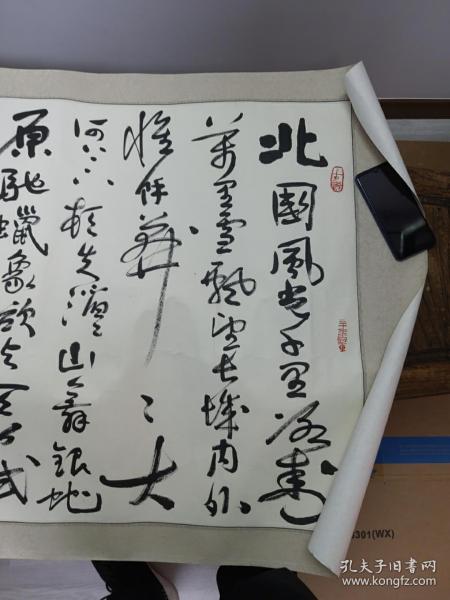 北國風光千里冰封
萬里雪飄望長城内外
惟余莽〻大
河上下頓失滔〻山舞銀蛇
原馳蠟象欲與天公試
301(WX)
孔夫子旧书网
www.kongfz.com